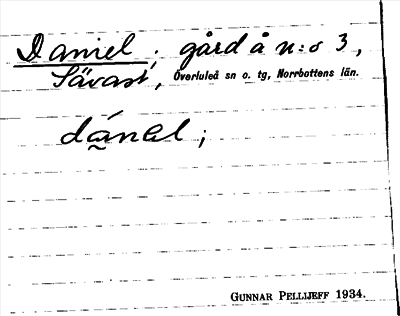 Daniel; gård å n:o 3,
Sävast, Överluleå sn o. tg, Norrbottens län.
GUNNAR PELLIJEFF 1934.